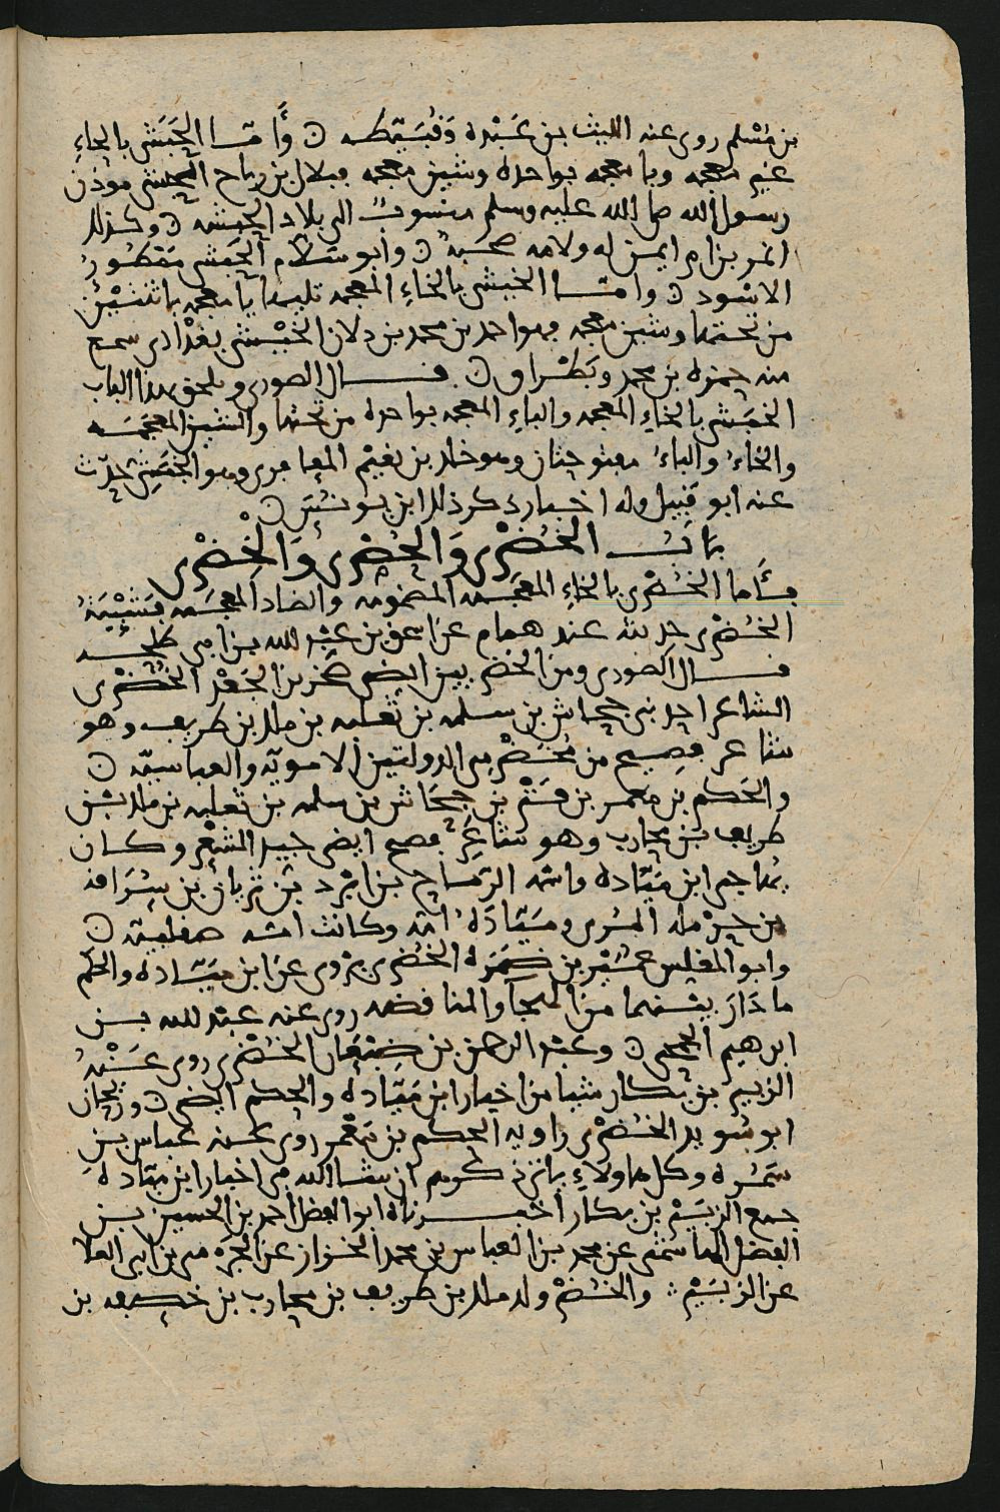 بن مسلم روى عنه الليث بن عبدة وقبيطه ۞ وأمّا الحَبَشي بالحاء
غير معجمه وبا معجمه بواحدة وشين معجمه فبلال بن رباح الحبشي موذن
رسول الله صلى الله عليه وسلم منسوب الى بلاد الحبشه ۞ وكذلك
ايمن له ولامه صحبة ۞ وابو سلّام الحَبَشي مَمْطُور
الاسود ۞ وامّا الخيشي بالخاءِ المعجمه تليها يا معجمه باثنتين
من تحتها وشين معجمه فهو احمد بن محمد بن دلان الخَيْشي بغدادي سمع
منه حمزه بن محمد ۞ قال الصوري ويلحق بهذا الباب
الخبَشي بالخاءِ المعجمه والباءِ المعجمه بواحدة من تحتها والشين المعجمه
والخاءُ والباءُ مفتوحتان وهو خالد بن نعيم المعافري وهو الخبشي حدّث
عنه ابو قبيل وله اخبار ذكر ذلك ابن يونس ۞
بَابُ الخُضْرى وَالحُصْرى وَالخِضْرى
فأَما الخُضْرى بالخاءِ المعجمه المضمومه والضاد المعجمه فشَيْبَةُ
الخُضْرى حديثه عند همام عن اسحق بن عبد الله بن ابي طلحه
قال الصورى ومن الخضريين ايضًا صخر بن الجَعْد الخُضْرى
الشاعر احد بنى جحاش بن سلمه بن ثعلبه بن ملك بن طريف وهو
شاعر فصيح من مُخَضْرمى الدولتين الاموية والعباسيّة ۞
والحَكم بن معمر بن قنبر بن جحاش بن سلمه بن ثعلبه بن ملك بن
طريف بن محارب وهو شاعر فصيح ايضًا جيد الشِعْر وكان
يُهاجى ابن مَيّادة واسمه الرّماح بن ابرد بن ثريان بن سراقه
بن حرمله المُرى ومَيّادة امّه وكانت امَةً صقلبية ۞
وابو المغلس عشير بن ضمره الخُضْرى يَروى عن ابن ميّاده والحكم
ما دَارَ بينهما من الهجا والمناقضه روى عنه عبد الله بن
ابرهيم الجمحي ۞ وعبد الرحمن بن ضبعان الخُضْرى روى عَنْهُ
الزبير بن بكّار شيا من اخبار ابن مَيّادة والحكم ايضًا ۞ وريحان
ابو سُويد الخُضْرى راويه الحكم بن مَعْمر روى عنه عباس بن
سَمُرة وكل هاولاءِ ياتى ذكرهم ان شا الله فى اخبار ابن ميّادة
جمع الزبير بن بكار أخبرناه ابو الفضل احمد بن الحسين بن
الفضل الهاشمى عن محمد بن العباس بن محمد الخزاز عن الحرمى بن ابى العلا
عن الزبير ۞ والخُضْر ولد ملك بن طريف بن محارب بن خصفه بن